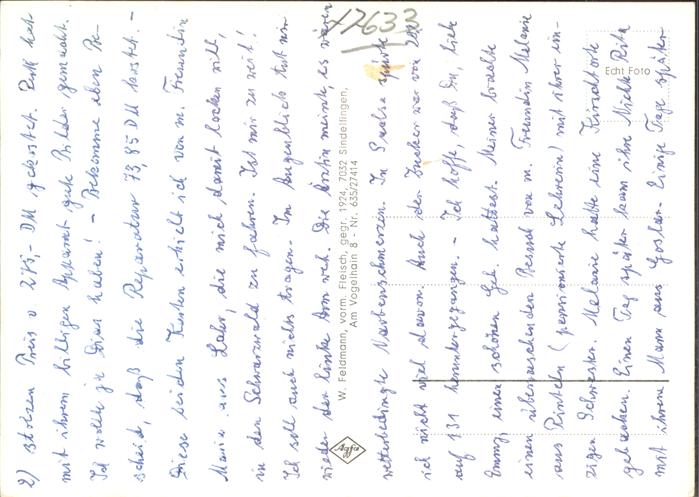 2) stolzen Preis v. 275,- DM gekostet. Rolf hat
mit ihrem billigen Apparat gute Bilder gemacht.
Ich wollte ja Dias haben! – Bekomme eben Be-
scheid, daß die Reparatur 73,85 DM kostet. –
Diese beiden Karten erhielt ich von m. Freundin
Maria aus Lahr, die mich damit locken will,
in den Schwarzwald zu fahren. Ist mir zu weit!
Ich soll auch nichts tragen. Im Augenblick tut mir
wieder der linke Arm weh. Die Ärztin meint, es wären
wetterbedingte Narbenschmerzen. In spürte
ich nicht viel davon. Auch der Zucker war von
auf 131 heruntergegangen. – Ich hoffe, daß Du, liebe
Emmy, einen schönen Geb. hattest. Meiner brachte
einen überraschenden Besuch von m. Freundin Melanie
aus Rinteln (pensionierte Lehrerin) mit ihrer ein-
zigen Schwester. Melanie hatte eine Kirschtorte
gebacken. Einen Tag später kam ihre Nichte Rita
mit ihrem Mann aus Goslar. Einige Tage später
17633
Echt Foto
W. Feldmann, vorm. Fleisch, gegr. 1924, 7032 Sindelfingen,
Am Vogelhain 8 - Nr. 635/27414
Agfa